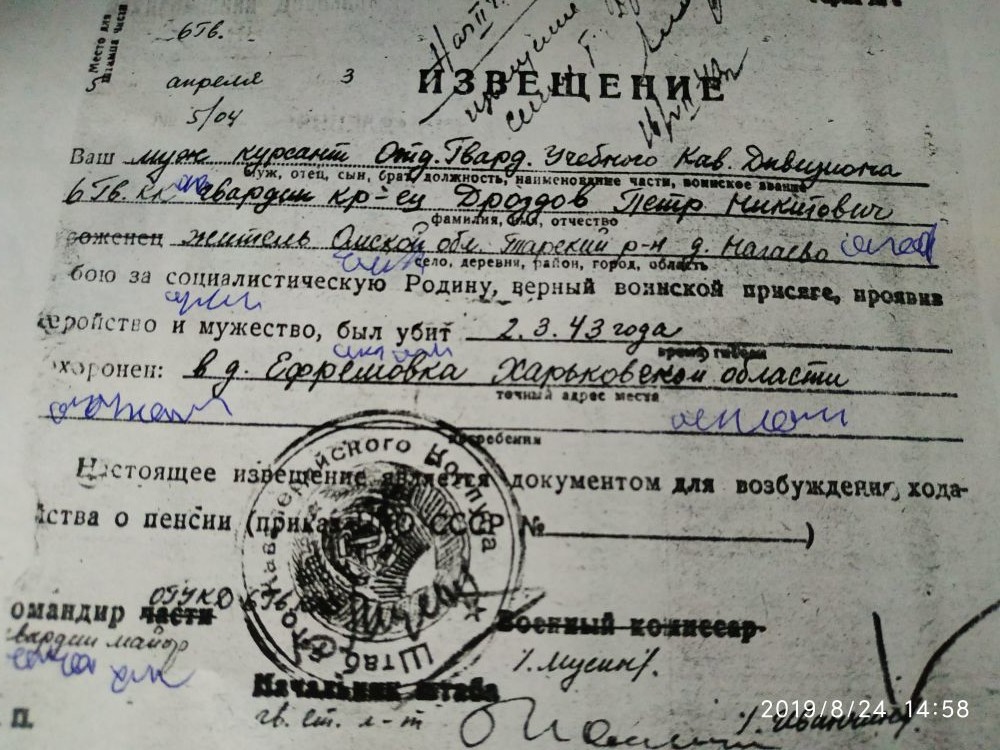 Место для
штампа части
6 Гв.
5 апреля 3
5/04
ИЗВЕЩЕНИЕ
Ваш муж курсант Отд. Гвард. Учебного Кав. Дивизиона
Муж, отец, сын, брат, должность, наименование части, воинское звание
6 Гв. КК гвардии кр-ец Дроздов Петр Никитович
фамилия, имя, отчество
роженец житель Омской обл. Тарский р-н д. Нагаево
село, деревня, район, город, область
бою за социалистическую Родину, верный воинской присяге, проявив
геройство и мужество, был убит 2.3.43 года
время гибели
хоронен: в д. Ефремовка Харьковской области
точный адрес места
погребения
Настоящее извещение является документом для возбуждения хода-
йства о пенсии (приказ НКО СССР № )
Кавалерийского Корпуса
Штаб
омандир части ОУКД 6 Гв.
Военный комиссар
гвардии майор
/. Мусин/.
Начальник штаба
гв. ст. л-т
П.
2019/8/24 14:58